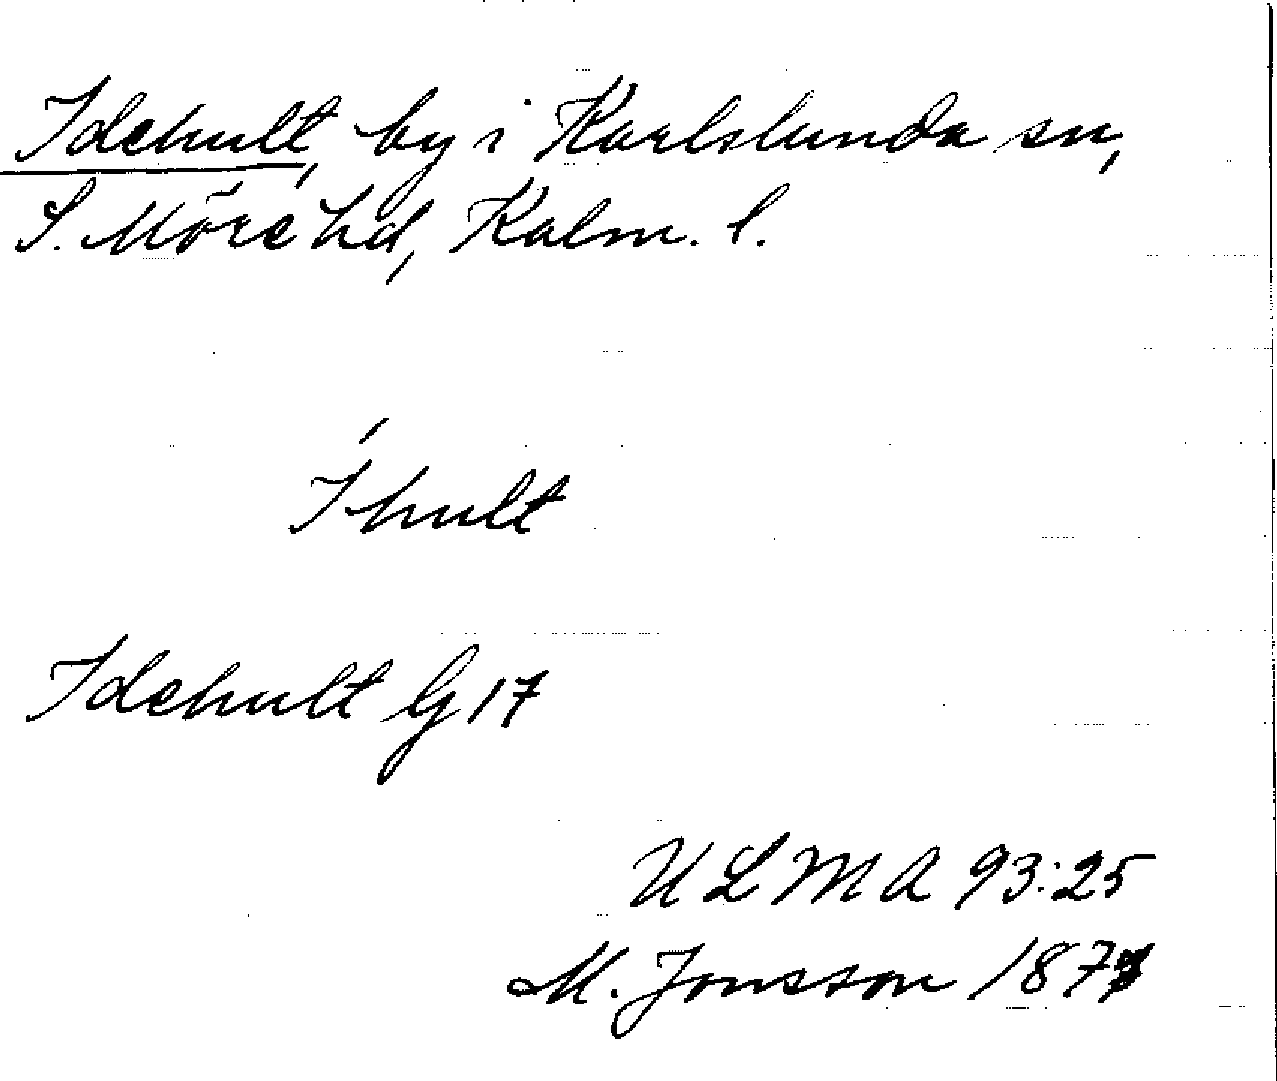 Idehult, by i Karlslunda sn,
S. Möre hd, Kalm. l.
Íhult
Idehult G 17
ULMA 93:25
M. Jonsson